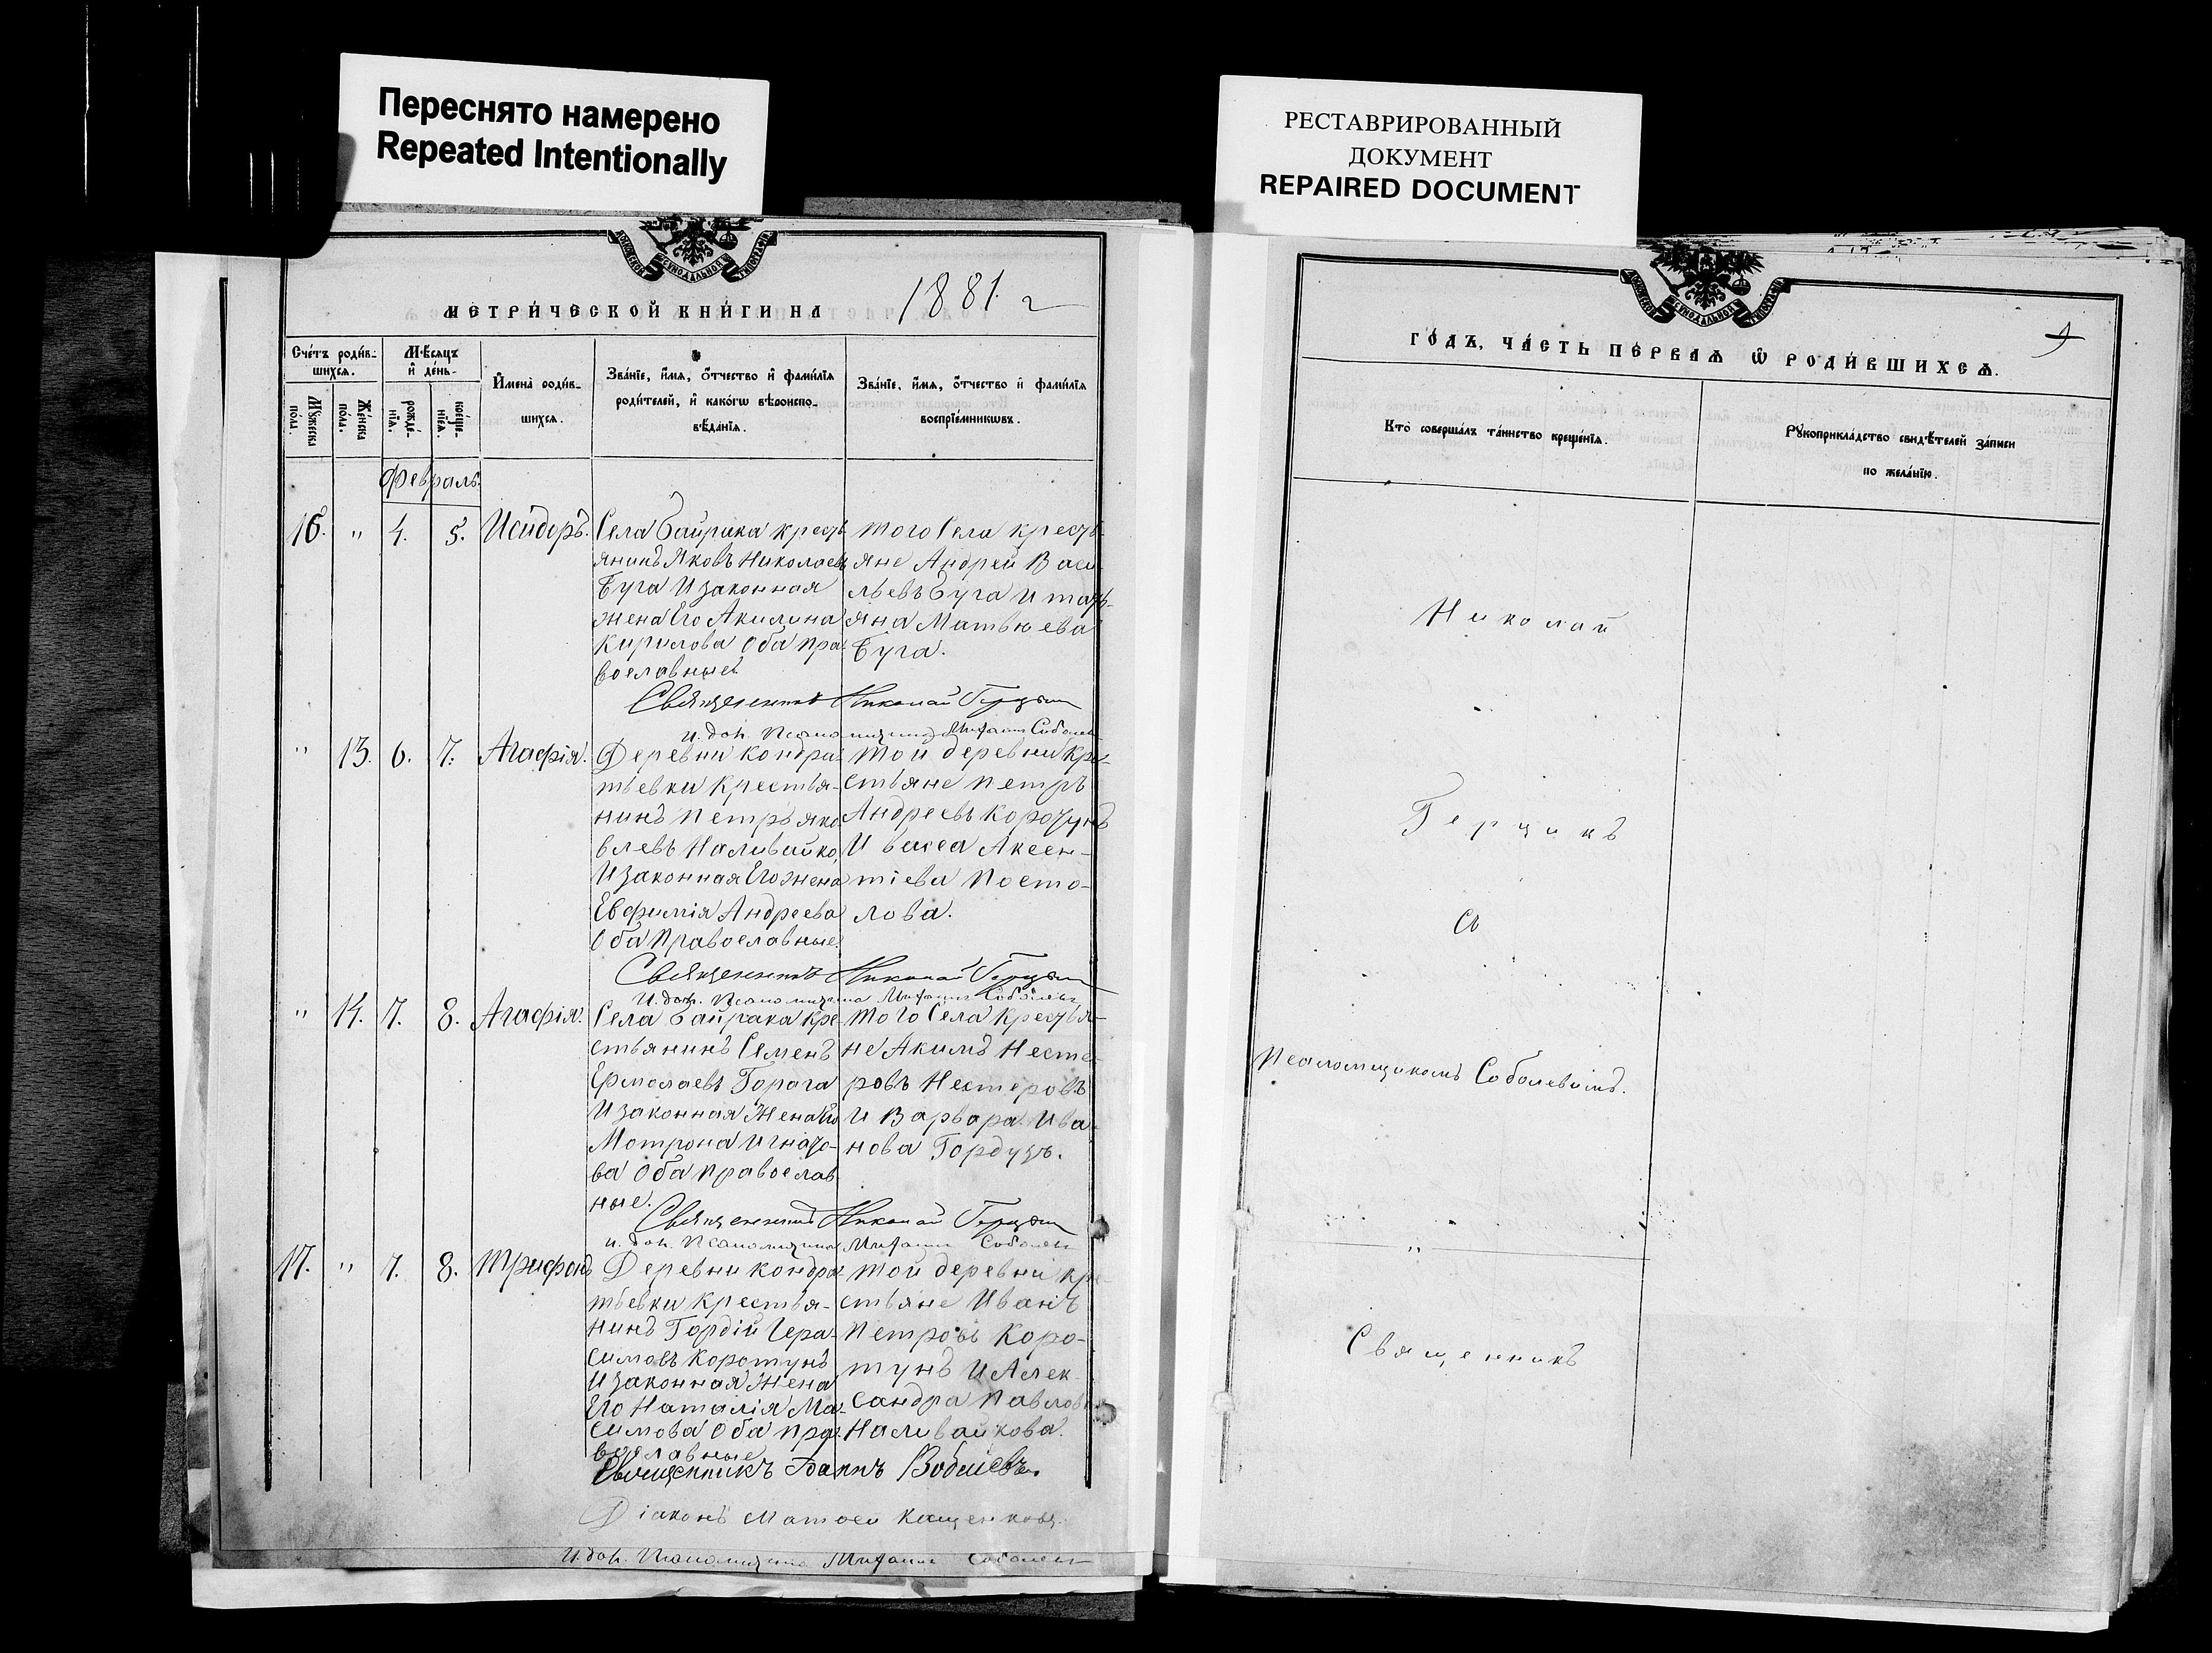 Переснято намерено
Repeated Intentionally
РЕСТАВРИРОВАННЫЙ
ДОКУМЕНТ
REPAIRED DOCUMENT
МЕТРИ́ЧЕСКОЙ КНИ́ГИ НА 1881 г
Сче́тъ роди́в-
шихсѧ.
Мѣ́сѧцъ
и҆ де́нь.
Му́жеска
пола.
Же́нска
пола.
рожде́-
нїѧ.
креще́-
нїѧ.
И҆мена̀ роди́в-
шихсѧ.
Зва́нїе, и҆́мѧ, ѻ҆́тчество и҆ фами́лїѧ
роди́телей, и҆ какѡ́гѡ вѣроиспо-
вѣ́данїѧ.
Зва́нїе, и҆́мѧ, ѻ҆́тчество и҆ фами́лїѧ
воспрїе́мникѡвъ.
Февраль.
16. " 4. 5. Исидоръ.
Села Байрака кресть
янинъ Яковъ Николаевъ
Буга И законная
жена Его Акилина
Кирилова Оба пра-
вославные.
того Села кресть-
яне Андрей Васи-
льевъ Буга И тать-
яна Матвѣева
Буга.
Священникъ Николай Герцикъ
и. дол. Псаломщика Михаилъ Соболев
" 13. 6. 7. Агафія.
Деревни Кондра-
тьевки Крестья-
нинъ Петръ Яко-
влевъ Наливайко,
И законная Его жена
Евфимія Андреева
Оба Православные.
той деревни кре-
стьяне Петръ
Андреевъ Коротунъ
И васса Аксен-
тіева Посто-
лова.
Священникъ Николай Герцикъ
И. дол. Псаломщика Михаилъ Соболевъ
" 14. 7. 8. Агафія.
Села Байрака Кре-
стьянинъ Семенъ
Ермолаевъ
И законная Жена Его
Мотрона Игнато-
ва Оба православ
ные.
того Села Крестья-
не Акимъ Несте-
ровъ Нестеровъ
И Варвара Ива-
нова
Священникъ Николай Герцикъ
и. дол. Псаломщика Михаилъ Соболев
17. " 7. 8. Трифонъ
Деревни Кондра-
тьевки Крестья-
нинъ Гордій Гера-
симовъ Коротунъ
И законная Жена
Его Наталія Ма-
симова Оба пра-
вославные
той деревни кре-
стьяне Иванъ
Петровъ Коро-
тунъ И Алек-
сандра Павлова
Наливайкова.
Священникъ Іоаннъ
Діаконъ
И. дол. Псаломщика Михаилъ Соболев
ГО́ДЪ, ЧА́СТЬ ПЕ́РВАѦ Ѡ҆ РОДИ́ВШИХСѦ.
9
Кто̀ соверша́лъ та́инство креще́нїѧ.
Рꙋкоприкла́дство свидѣ́телей за́писи
по жела́нїю.
Николай
Герцикъ
съ
Псаломщикомъ Соболевымъ.
"
Священникъ